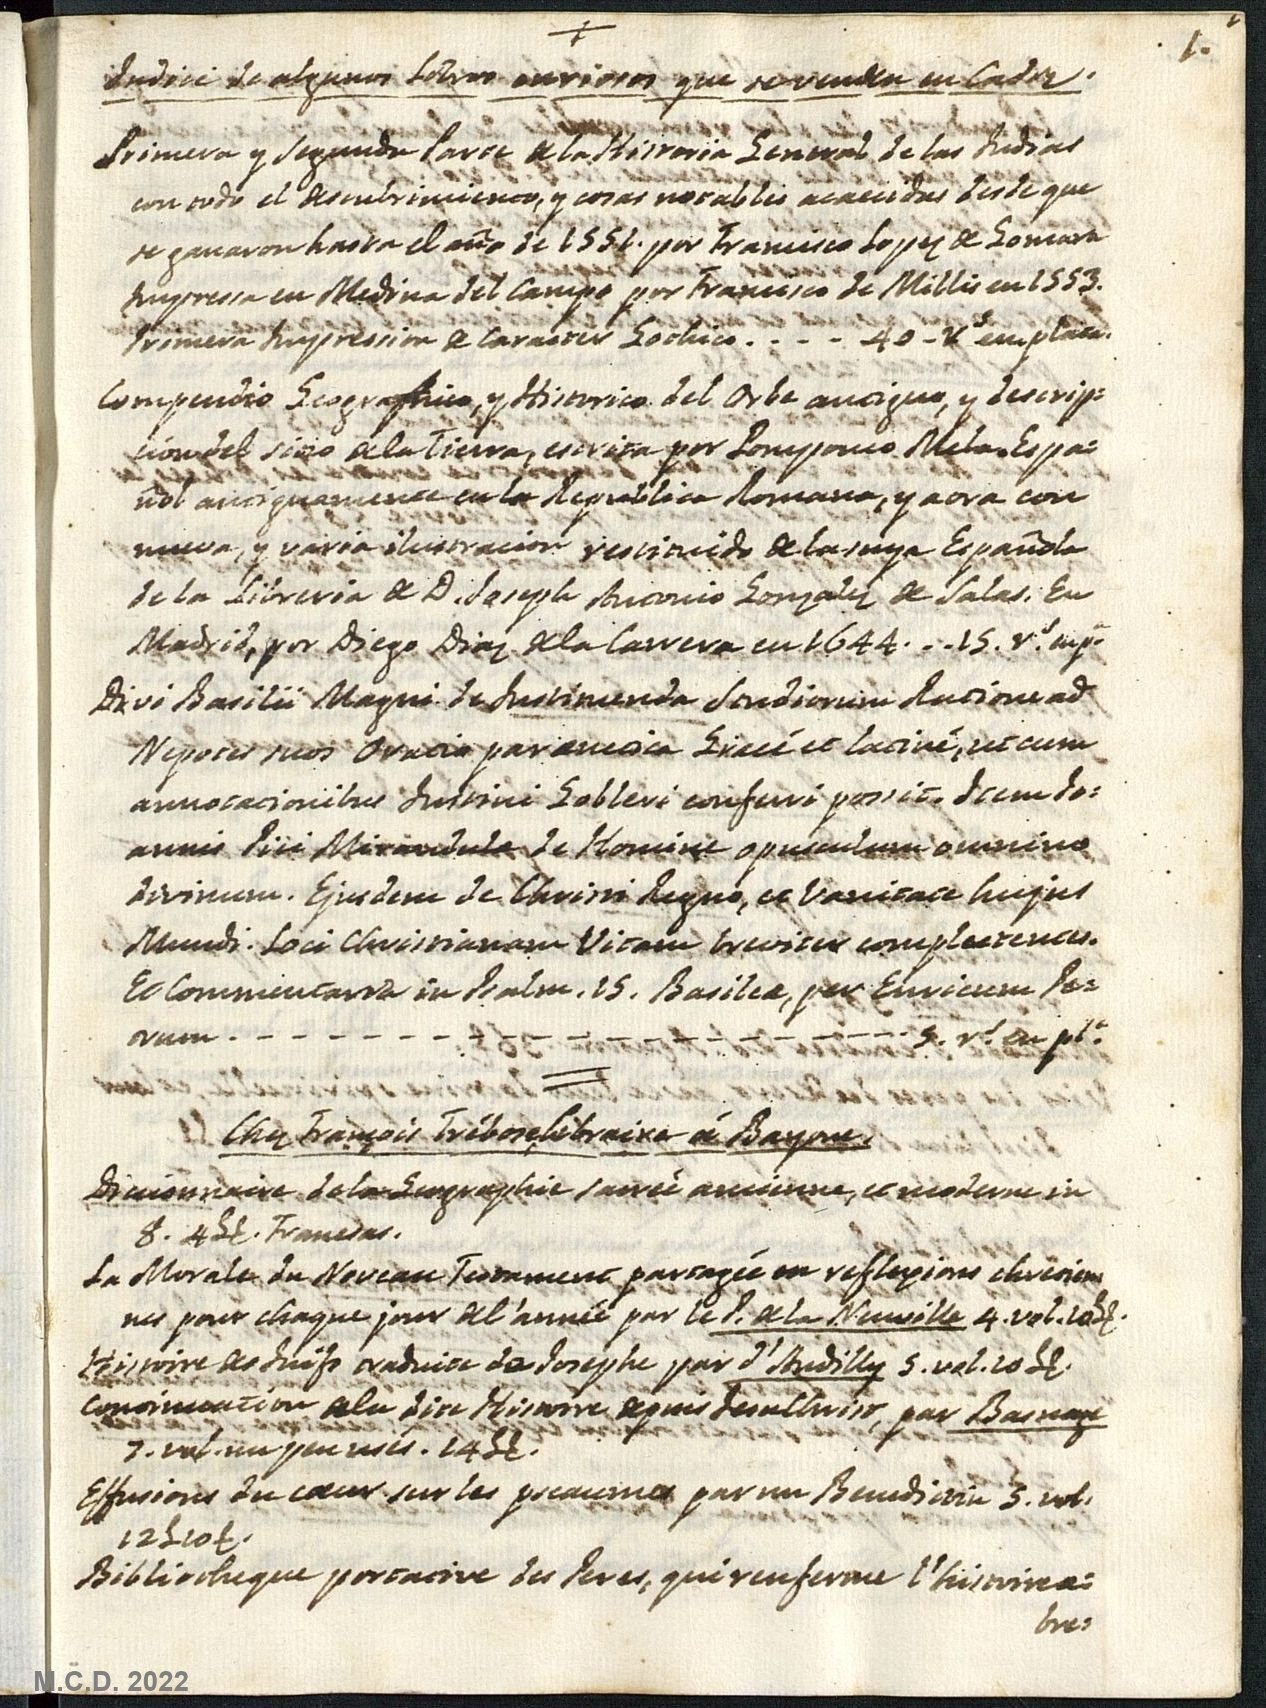 1.
Indice de algunos Libros curiosos que se venden en Cadiz.
Primera y Segunda Parte de la Historia General de las Indias
con todo el descubrimiento, y cosas notables acaecidas desde que
se ganaron hasta el año de 1551. por Francisco Lopez de Gomara
Impressa en Medina del Campo por Francisco de Millis en 1553.
Primera Impression de Caracter Gothico. - - - - 40 - rs. en plata.
Compendio Geographico, y Historico del Orbe antiguo, y descrip=
cion del sitio de la Tierra, escrita por Pomponio Mela Espa=
ñol antiguamente en la Republica Romana, y aora con
nueva, y varia ilustracion restituido a la suya Española
de la Libreria de D. Joseph Antonio Gonzalez de Salas. En
Madrid, por Diego Diaz de la Carrera en 1644. - - 15. rs. en pta.
Divi Basilii Magni de Instituenda Studiorum Ratione ad
Nepotes suos Oratio paraenetica Graecé et latiné, ut cum
annotationibus Justini Gobleri conferri possit. Item Jo=
annis Pici Mirandulae de Homine opusculum omnino
divinum. Ejusdem de Christi Regno, et Vanitate hujus
Mundi. Loci Christianam Vitam breviter complectentes.
Et Commentarii in Psalm. 15. Basileae, per Enricum Pe=
trum. - - - - - - - - - - - - - - - - - - - - 5. rs. en pta.
Chez François Trébosc, libraire à Bayone.
Dictionnaire de la Geographie sacrée ancienne, et moderne in
8. 4 ₶. Francesas.
La Morale du Nouveau Testament partagée en reflexions chretien
nes pour chaque jour de l'année par le P. de la Neuville 4. vol. 10 ₶.
Histoire des Juifs traduite de Josephe par d'Andilly 5. vol. 10 ₶.
Continuation de la dite Histoire depuis Jesus Christ, par Basnage
7. vol. un peu usés. 14 ₶.
Effusions du coeur sur les pseaumes par un Benedictin 3. vol.
12 ₶ 10 ſ.
Bibliotheque portative des Peres, qui renferme l'histoire a=
bre=
M.C.D. 2022